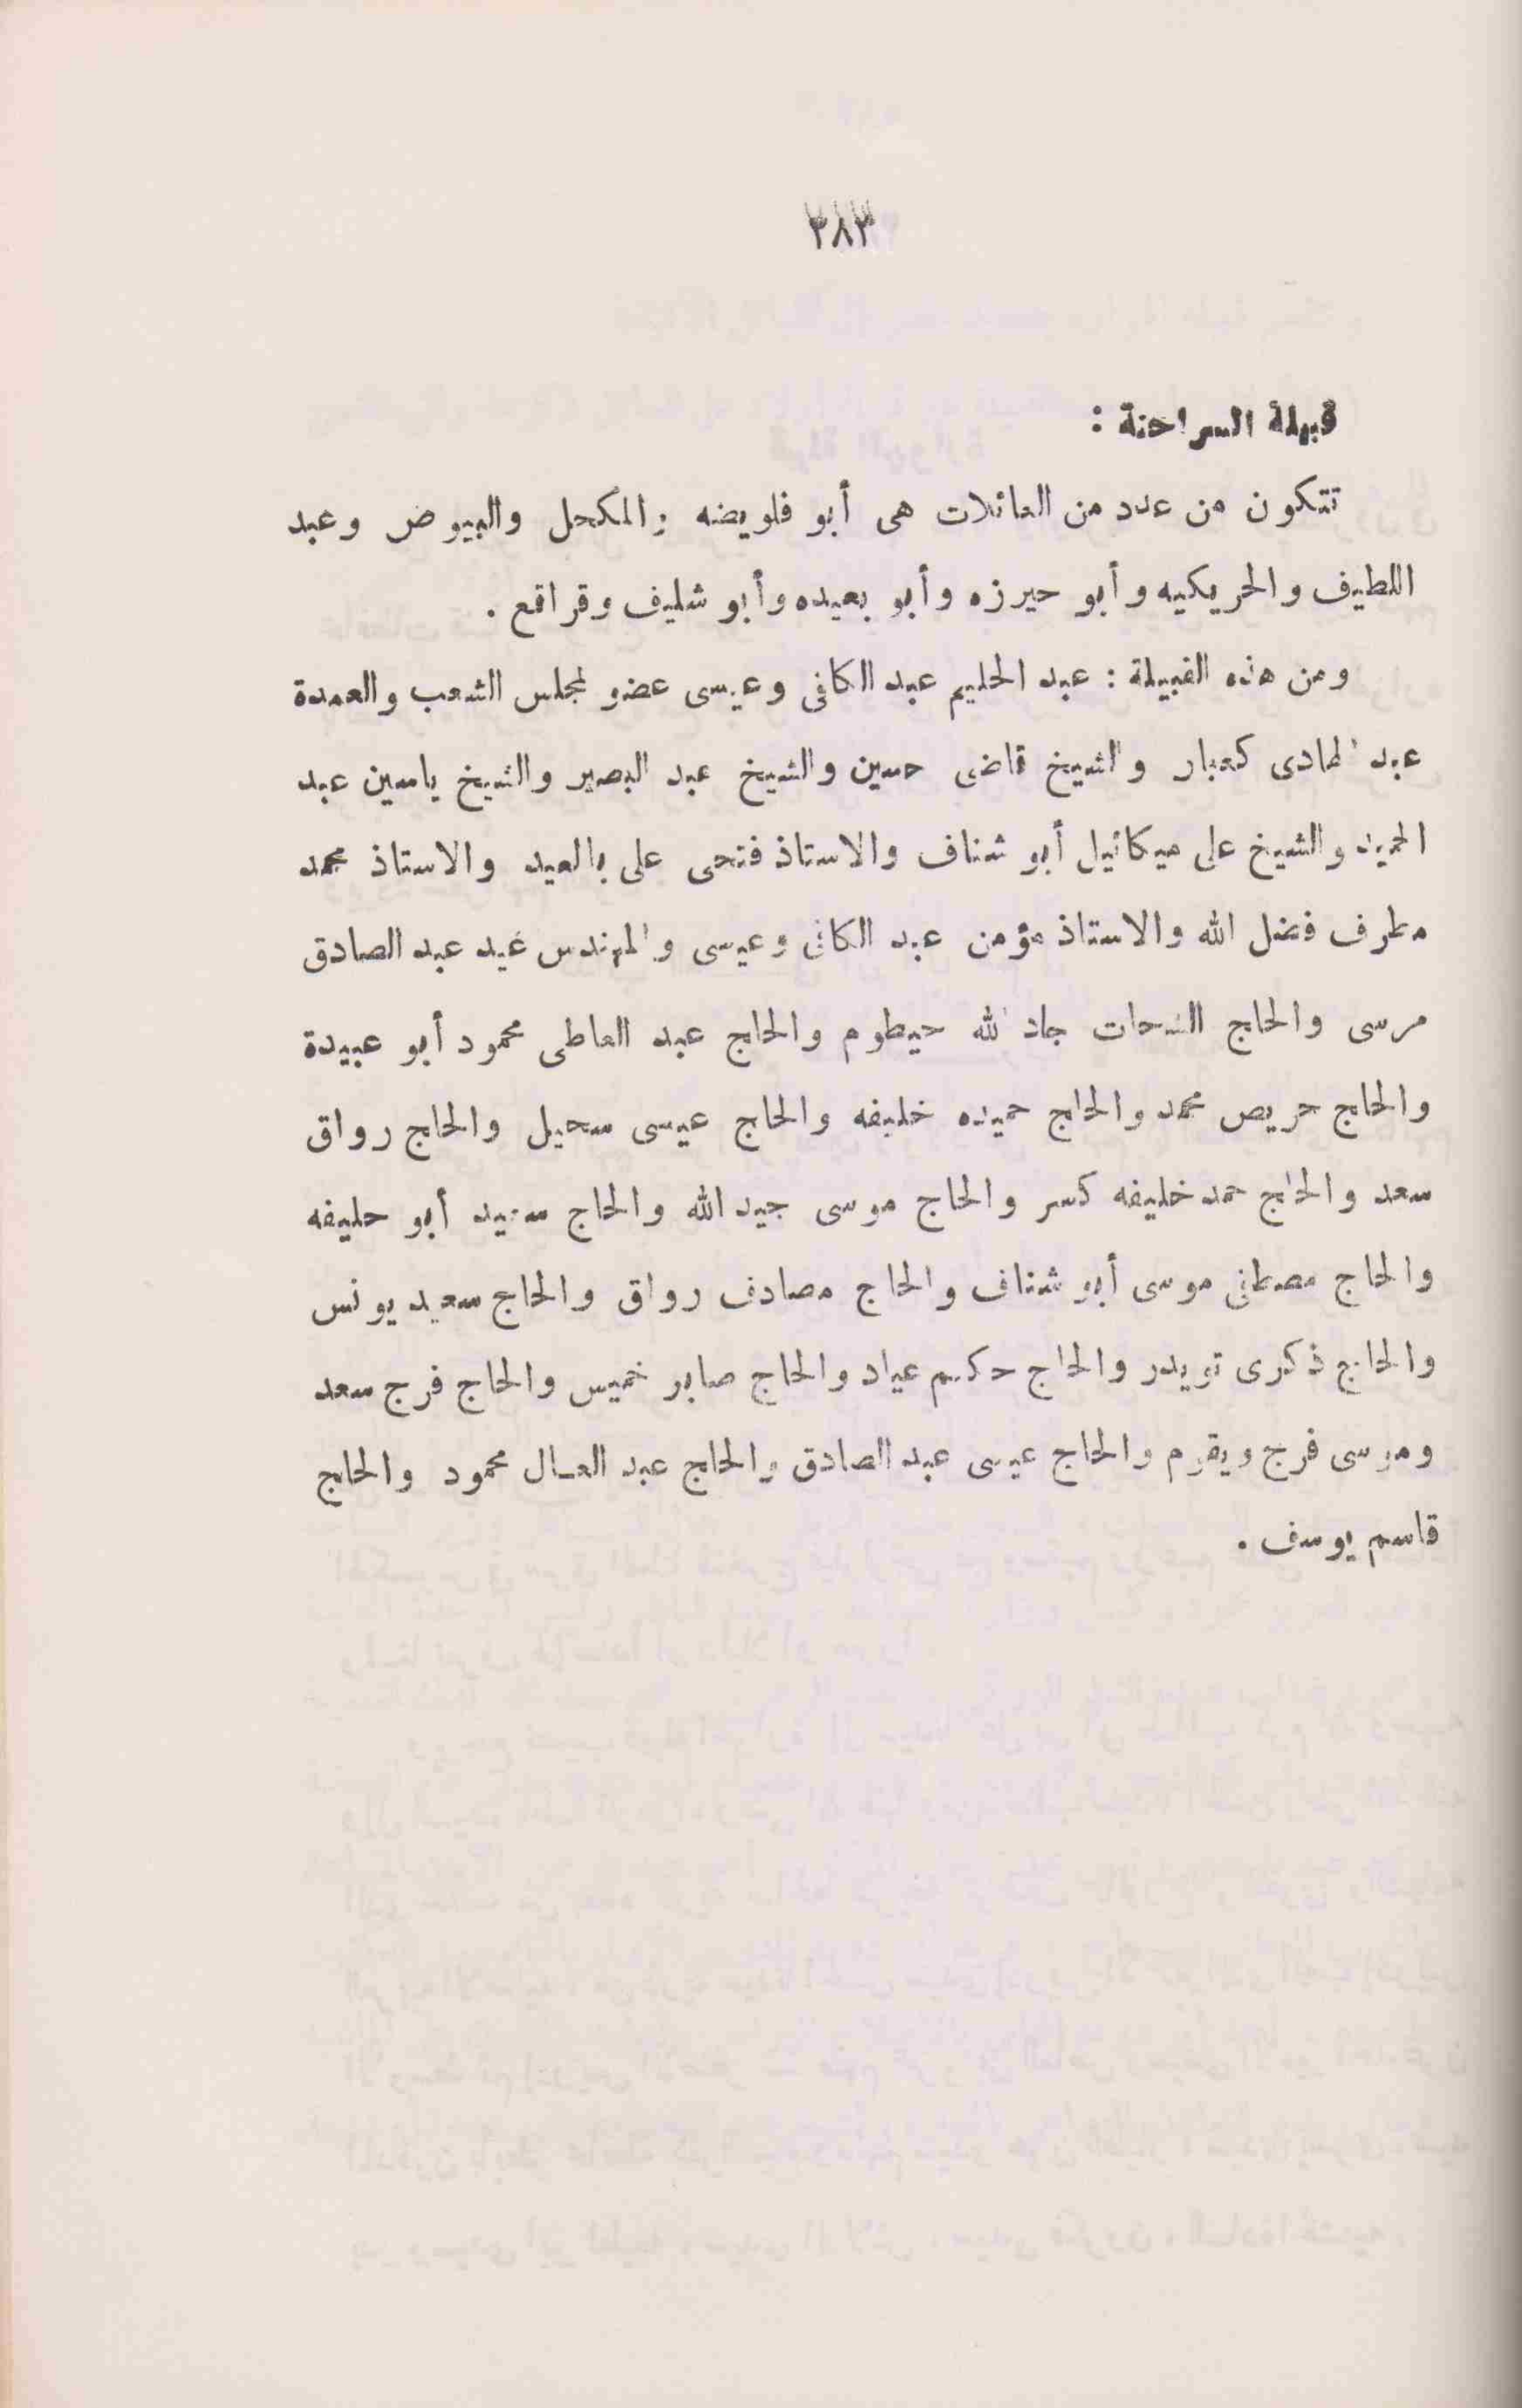 ٣٨٣
قبيلة السراحنة :
تتكون من عدد من العائلات هى أبو فلويضه والمكحل والبيوض وعبد
اللطيف والحريكيه وأبو حيرزه وأبو بعيده وأبو شليف وقراقع .
ومن هذه القبيلة : عبد الحليم عبد الكافى وعيسى عضو لمجلس الشعب والعمدة
عبد الهادى كعبار والشيخ قاضى حسين والشيخ عبد البصير والشيخ ياسين عبد
الحميد والشيخ على ميكائيل أبو شناف والاستاذ فتحى على بالعيد والاستاذ محمد
مطرف فضل الله والاستاذ مؤمن عبد الكافى وعيسى والمهندس عيد عبد الصادق
مرسى والحاج الشحات جاد الله حيطوم والحاج عبد العاطى محمود أبو عبيدة
والحاج حريص محمد والحاج حميده خليفه والحاج عيسى سحيل والحاج رواق
سعد والحاج حمد خليفه كسر والحاج موسى جيد الله والحاج سعيد أبو حليفه
والحاج مصطفى موسى أبو شناف والحاج مصادف رواق والحاج سعيد يونس
والحاج ذكرى تويدر والحاج حكيم عياد والحاج صابر خميس والحاج فرج سعد
وموسى فرج ويقوم والحاج عيسى عبد الصادق والحاج عبد العال محمود والحاج
قاسم يوسف .